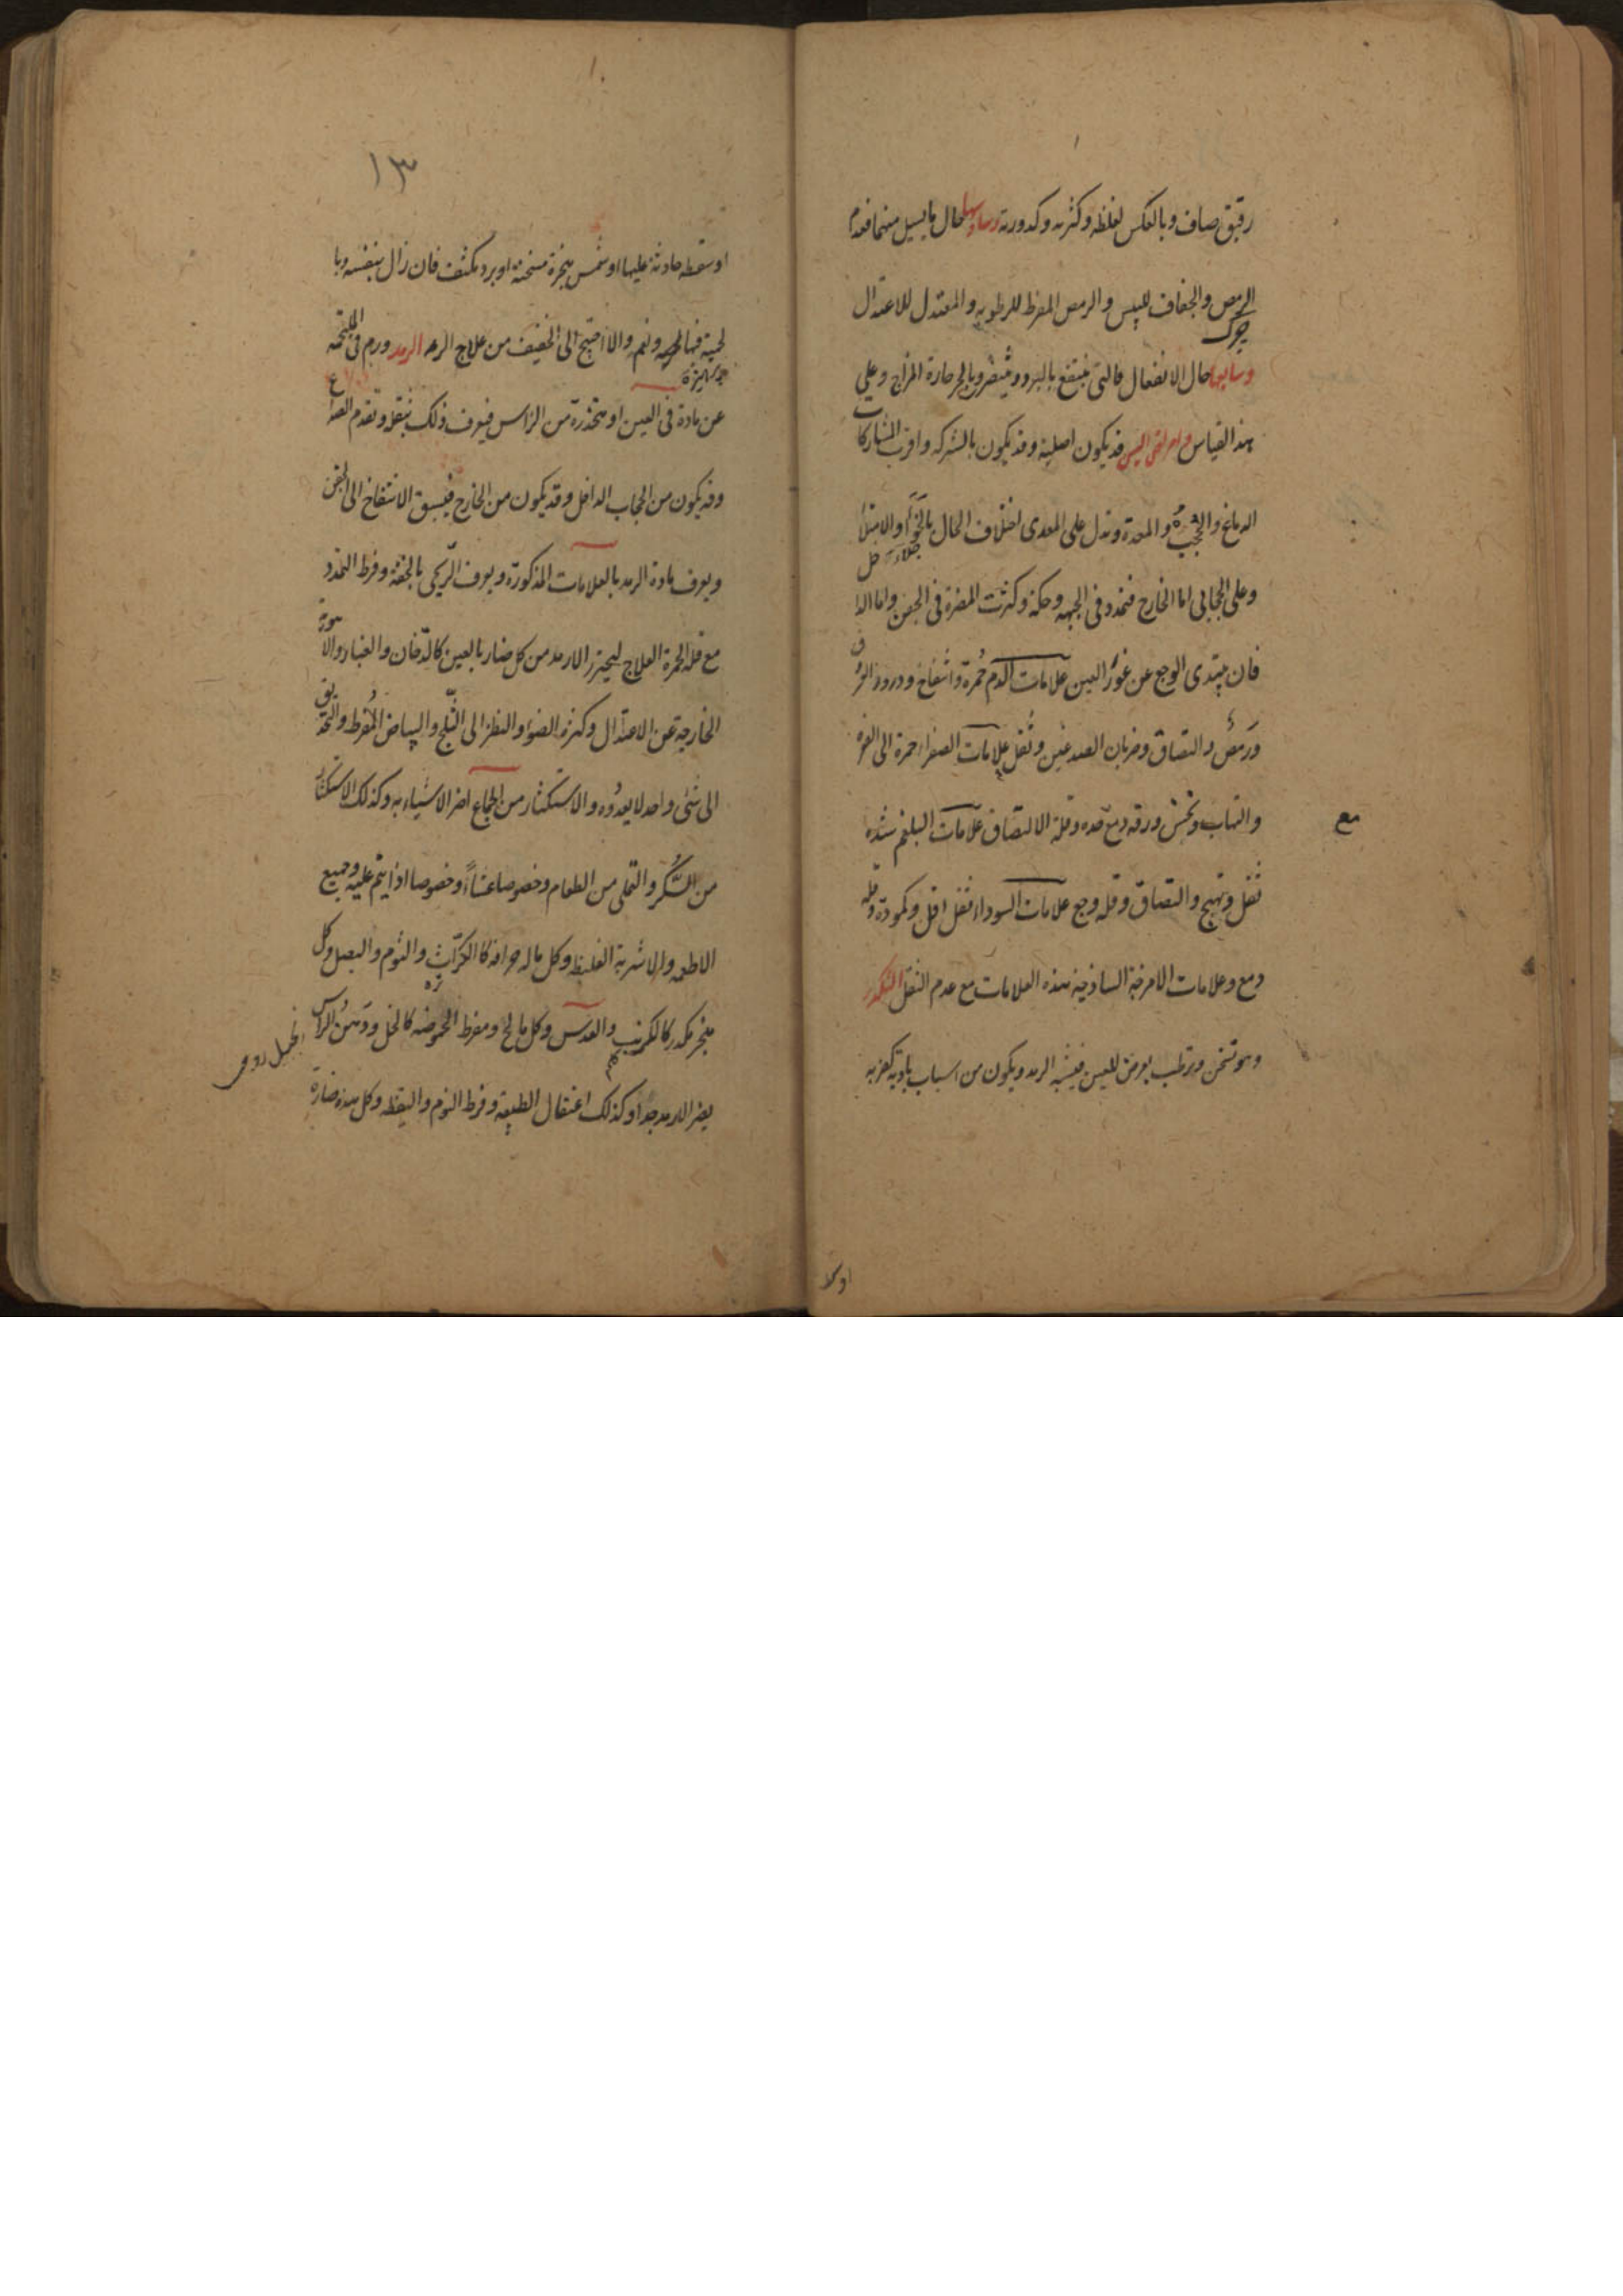 رقیق صاف وبالعکس لغلظه وکثرته وکدورته وسادسها حال ما یسیل منها فعدم
الرمص والجفاف للیبس والرمص المفرط للرطوبه والمعتدل للاعتدال
چرک
وسابعها حال الانفعال فالتی ینتفع بالبرد ویتضرر بالحر حارة المزاج وعلی
هذا القیاس وامراض العین قد یکون اصلیة وقد یکون بالشرکه واقرب المشارکات
الدماغ والحجب والمعدة ویدل علی المعدی اختلاف الحال بالخواء والامتلا
وعلی الحجابی اما الخارج فتمدد فی الجبهه وحکة وکثرت المضرة فی الجفن واما الدا
خل
فان یبتدی الوجع عن غور العین علامات الدم حمرة وانتفاخ ودرور العرو
ق
ورمص والتصاق وضربان الصدغین وثقل علامات الصفراء حمرة الی الصفره
مع
والتهاب ونخس ورقه دمع حده وقلة الالتصاق علامات البلغم شده
ثقل وتهیج والتصاق وقله وجع علامات السوداء ثقل اقل وکمودة وقله
دمع وعلامات الامزجة الساذجة هذه العلامات مع عدم الثقل التکدر
وهو تسخن وترطب یعرض للعین فیشبه الرمد ویکون من اسباب بادیة کضربه
اوسقطه
١٣
اوسقطه حادثة علیها او شمس مبخرة مسخنة او برد مکثف فان زال بنفسه وبا
لحمیة فبها ونعم والا احتیج الی الخفیف من علاج الرمد الرمد ورم فی الملتحمه
عن مادة فی العین او متحدرة من الراس فیعرف ذلک بثقله وتقدم الصدا
ع
وقد یکون من الحجاب الداخل وقد یکون من الخارج فیسبق الانتفاخ الی الجفن
ویعرف مادة الرمد بالعلامات المذکورة ویعرف الریحی بالخفة وفرط التمدد
مع قله الحمرة العلاج لیحترز الارمد من کل ضار بالعین کالدخان والغبار والا
هویة
الخارجة عن الاعتدال وکثرة الضوء والنظر الی الثلج والبیاض المفرط والتحد
یق
الی شئی واحد لا یعدوه والاستکثار من الجماع اضر الاشیاء به وکذلک الاستکثار
من السکر والتملی من الطعام وخصوصا عشاء وخصوصا اذا ینم علیه وجمیع
الاطعمه والاشربة الغلیظه وکل ماله حرافه کالکراث والثوم والبصل وکل
مبخر مکدر کالکرنب والعدس وکل مالح ومفرط الحموضه کالخل ودهن الراس
یضر الارمد جدا وکذلک اعتقال الطبیعة وفرط النوم والیقظه وکل هذه ضارة